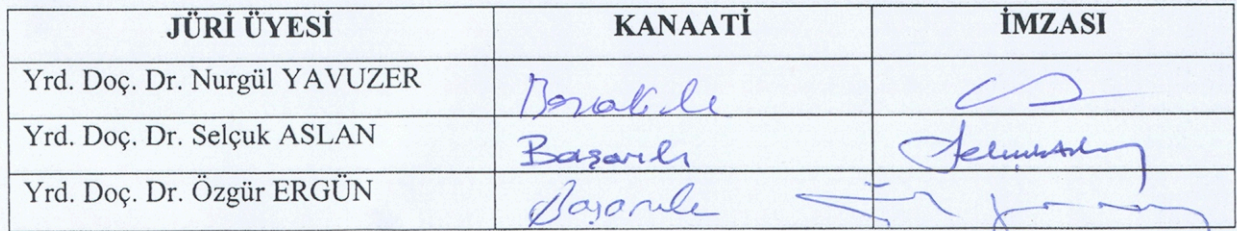 JÜRİ ÜYESİ KANAATİ İMZASI
Yrd. Doç. Dr. Nurgül YAVUZER Başarılı
Yrd. Doç. Dr. Selçuk ASLAN Başarılı
Yrd. Doç. Dr. Özgür ERGÜN Başarılı